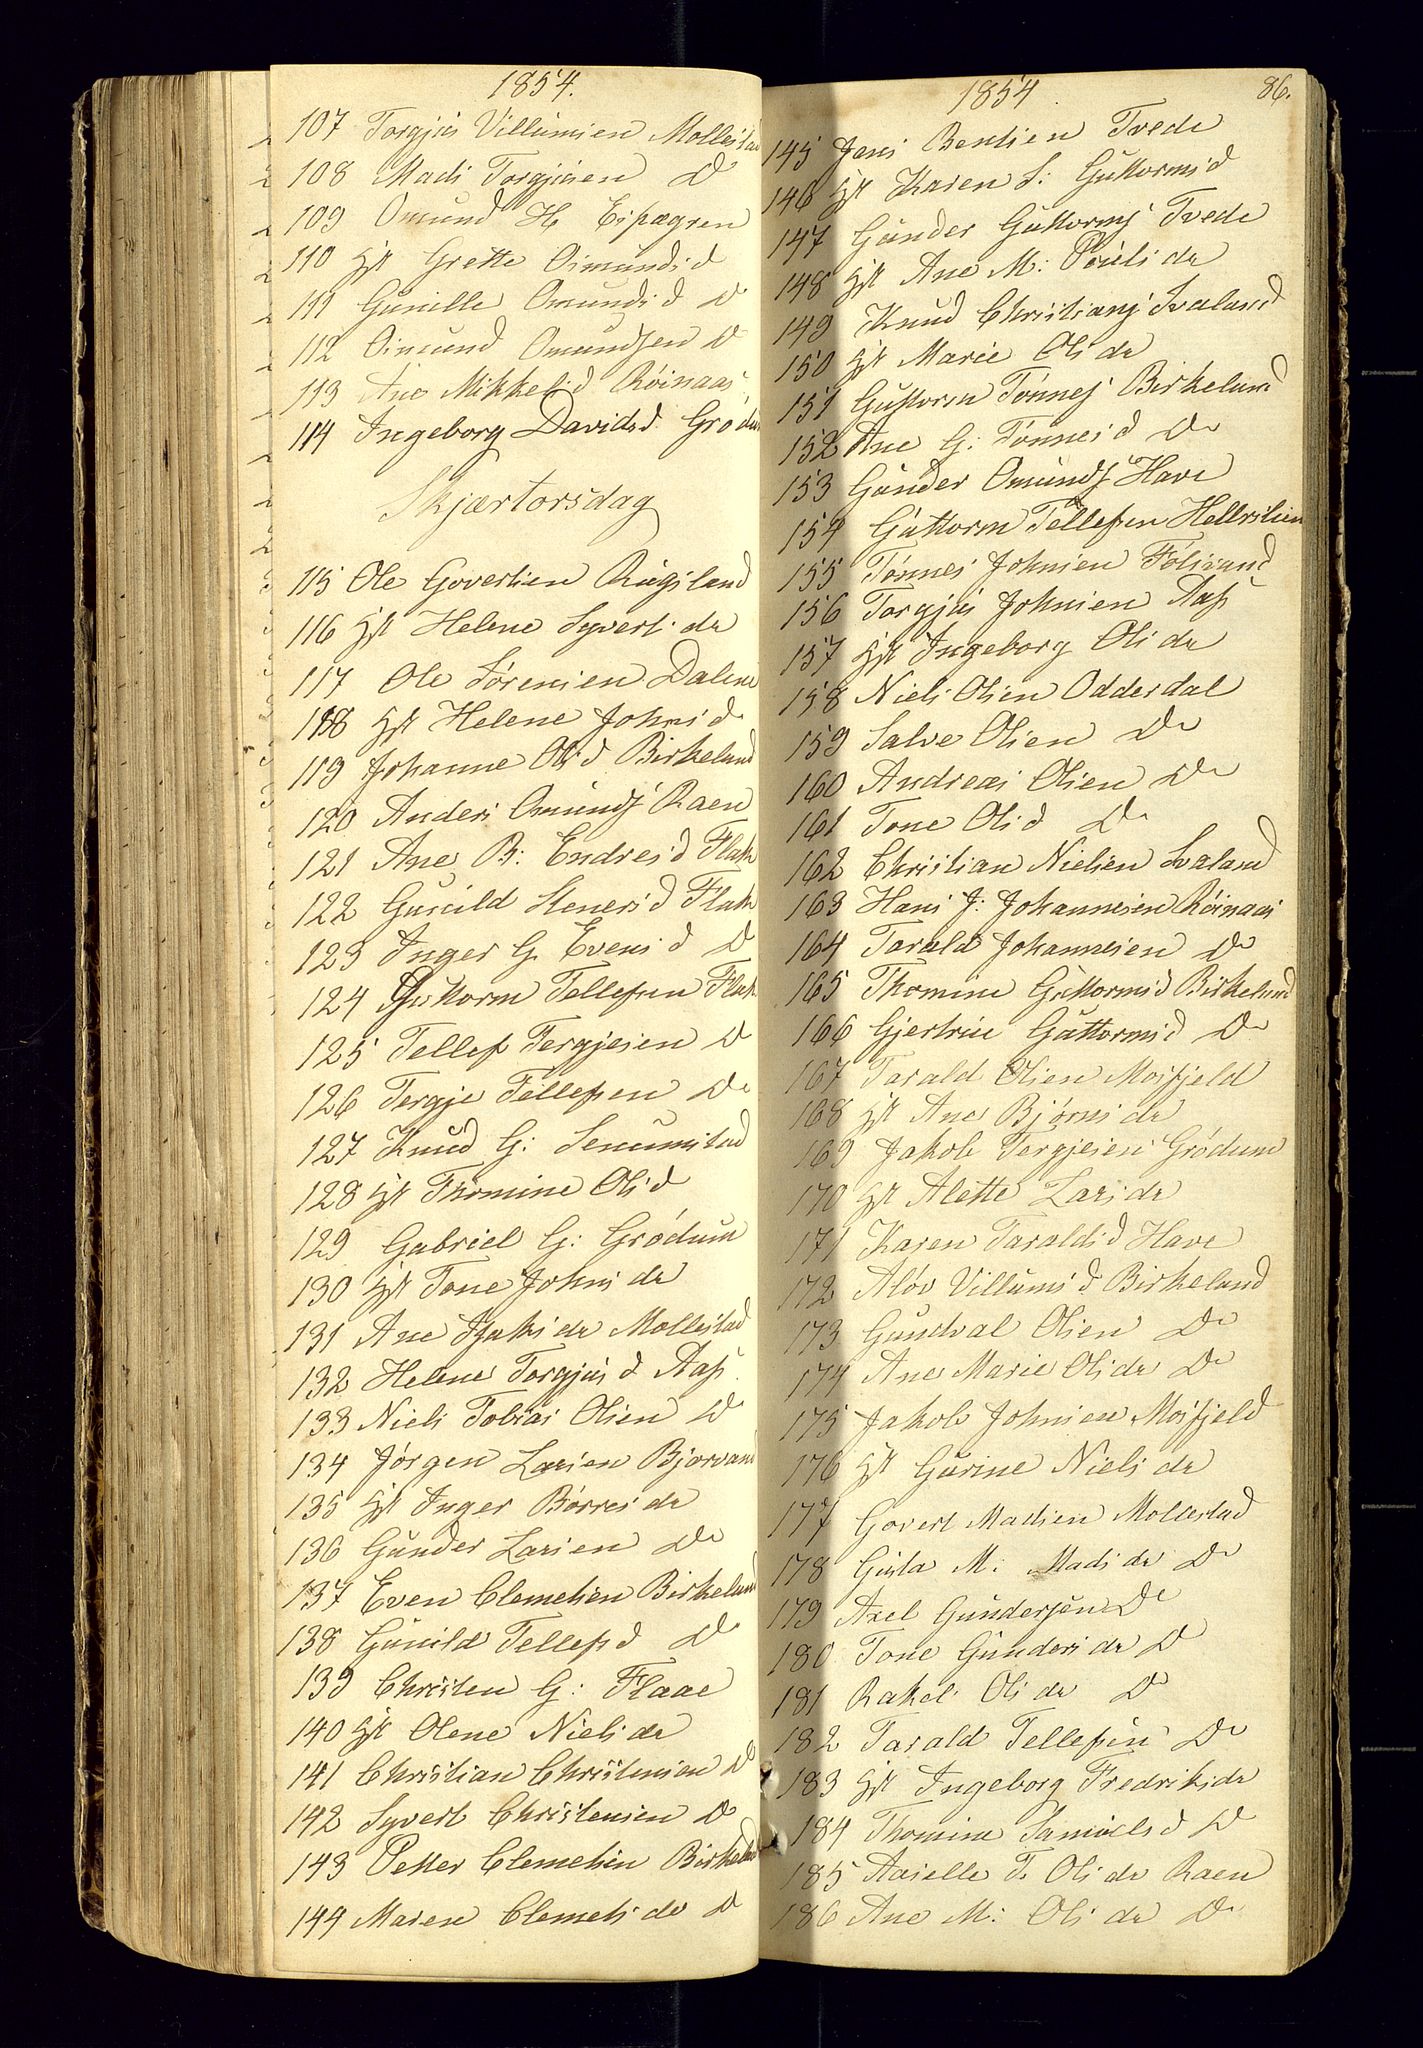 1854.
107 Torgjus Villumsen Mollestad
108 Mads Torgjusen D
109 Omund H Espægren
110 Hst Grethe Osmunds d
111 Gunille Omunds d D
112 Osmund Omundsen D
113 Ane Mikkels d Røinaas
114 Ingeborg Davids d Grödum
Skjærtorsdag
115 Ole Govertsen Rugsland
116 Hst Helene Syverts da
117 Ole Sørensen Dalene
118 Hst Helene Johns da
119 Johanne Ols d Birkeland
120 Anders Omunds Raen
121 Ane B: Endres d Flak
122 Gunild Steners d Flak
123 Inger G Evens d D
124 Guttorm Tellefsen Flak
125 Tellef Tergjesen D
126 Tergje Tellefsen Do
127 Knud G: Senumstad
128 Hst Thomine Ols d
129 Gabriel G: Grødum
130 Hst Tone Johns da
131 Ane Isaks da Mollestad
132 Helene Torgjus d Aas
133 Niels Tobias Olsen D
134 Jørgen Larsen Bjorvand
135 Hst Inger Børres da
136 Gunder Larsen Do
137 Even Clemetsen Birkeland
138 Gunild Tellefs d Do
139 Christen G: Flaae
140 Hst Olene Niels da
141 Christian Christensen D
142 Syvert Christensen D
143 Petter Clemetsen Birkeland
144 Maren Clemets da D
1854
86.
145 Jens Bentsen Tvede
146 Hst Karen S: Guttorms d
147 Gunder Guttorms Tvede
148 Hst Ane M: Pouls da
149 Knud Christians Svaland
150 Hst Marie Ols da
151 Guttorm Tønnes Birkeland
152 Ane G: Tønnes d Do
153 Gunder Omunds Have
154 Guttorm Tellefsen Hellvslien
155 Tønnes Johnsen Fölsvand
156 Torgjus Johnsen Aas
157 Hst Ingeborg Ols da
158 Niels Olsen Odderdal
159 Salve Olsen Do
160 Andreas Olsen Do
161 Tone Ols d Do
162 Christian Nielsen Svaland
163 Hans J: Johannesen Røinaas
164 Tarald Johannesen Do
165 Thomine Guttorms d Birkeland
166 Gjertrue Guttorms d Do
167 Tarald Olsen Mosfjeld
168 Hst Ane Bjørns da
169 Jakob Tergjesen Grödum
170 Hst Alette Lars da
171 Karen Taralds d Have
172 Aløv Villums d Birkeland
173 Gundval Olsen Do
174 Ane Marie Ols da Do
175 Jakob Johnsen Mosfjeld
176 Hst Gurine Niels da
177 Govert Madsen Mollestad
178 Gusta M: Mads da Do
179 Axel Gundersen Do
180 Tone Gunders da D
181 Rakel Ols da D
182 Tarald Tellefsen Do
183 Hst Ingeborg Fredriks da
184 Thomine Samuels d D
185 Aaselle T. Ols da Raen
186 Ane M: Ols da Do